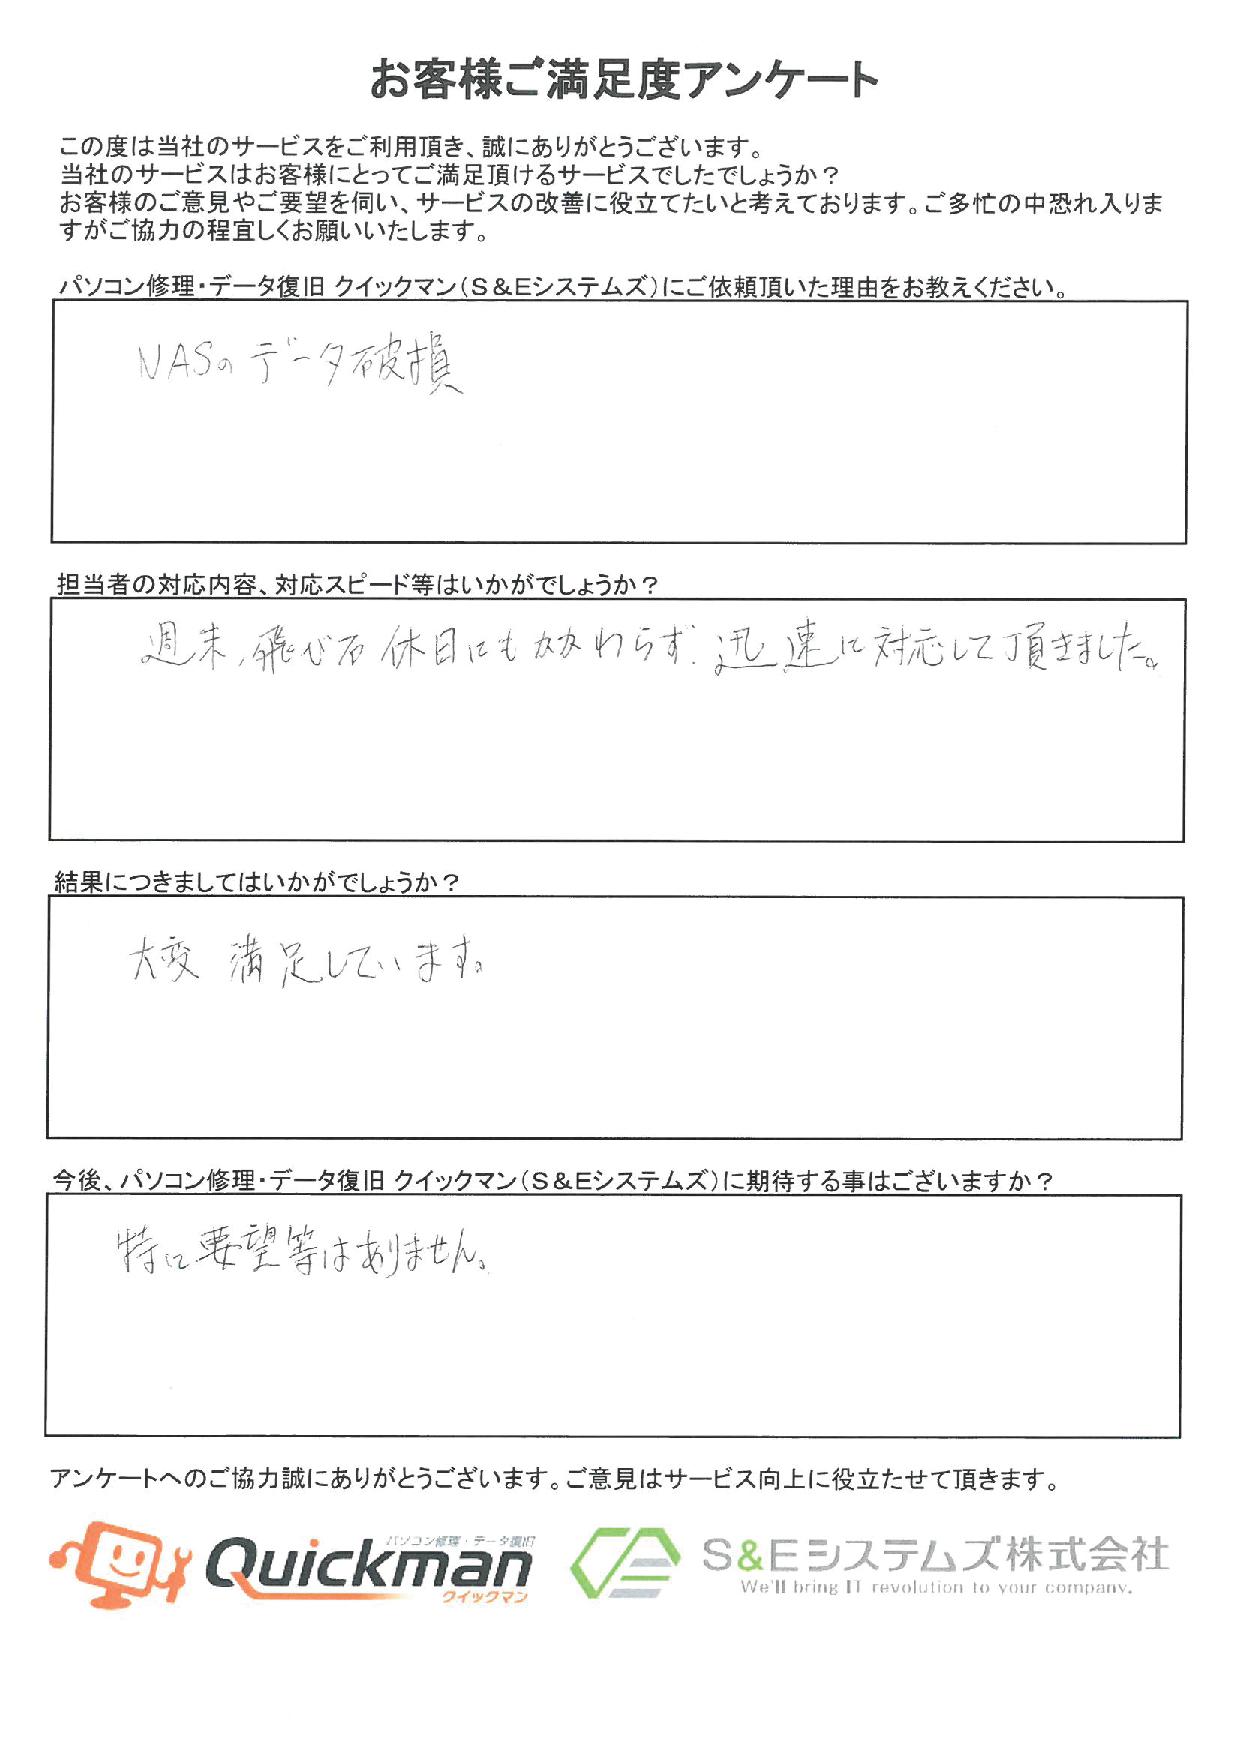 お客様ご満足度アンケート
この度は当社のサービスをご利用頂き、誠にありがとうございます。
当社のサービスはお客様にとってご満足頂けるサービスでしたでしょうか？
お客様のご意見やご要望を伺い、サービスの改善に役立てたいと考えております。ご多忙の中恐れ入りま
すがご協力の程宜しくお願いいたします。
パソコン修理・データ復旧 クイックマン（S＆Eシステムズ）にご依頼頂いた理由をお教えください。
NASのデータ破損
担当者の対応内容、対応スピード等はいかがでしょうか？
週末、飛び石休日にもかかわらず、迅速に対応して頂きました。
結果につきましてはいかがでしょうか？
大変 満足しています。
今後、パソコン修理・データ復旧 クイックマン（S＆Eシステムズ）に期待する事はございますか？
特に要望等はありません。
アンケートへのご協力誠にありがとうございます。ご意見はサービス向上に役立たせて頂きます。
パソコン修理・データ復旧
Quickman
クイックマン
S&Eシステムズ株式会社
We'll bring IT revolution to your company.